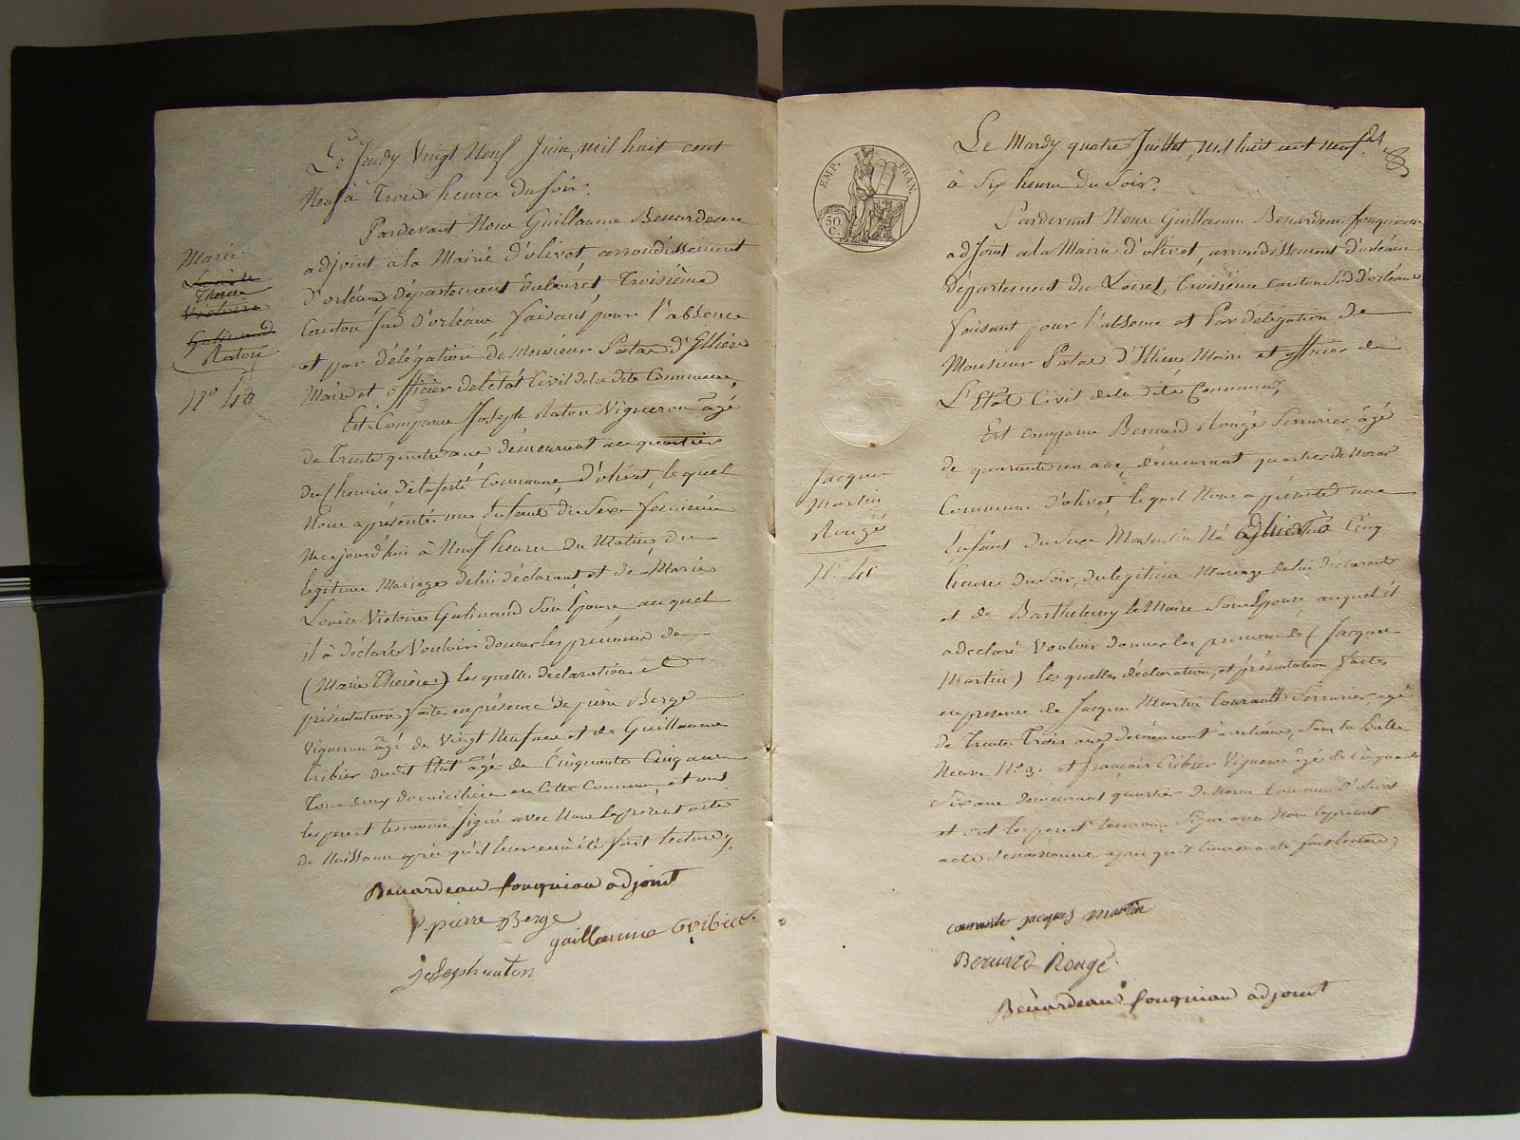 Le Jeudy Vingt Neuf Juin, mil huit cent
Neuf à Trois heures du soir.
Pardevant Nous Guillaume Benardeau
adjoint à la Mairie d'olivet, arrondissement
d'orléans département du loiret Troisième
Canton sud d'orléans faisant pour l'absence
et par délégation de Monsieur
Maire et officier de l'état Civil de la dite Commune,
Est Comparu Joseph Raton Vigneron âgé
de Trente quatre ans demeurant au quartier
de la ferté Commune d'olivet, le quel
Nous a présenté un Enfant du Sexe feminin
Né aujourd'hui à Neuf heures du Matin du
légitime Mariage de lui déclarant et de Marie
Louise Victoire Galinand Son Epouse, auquel
il à déclaré Vouloir donner les prénoms de
(Marie Thérèse) les quelles déclaration et
présentation faite en présence de pierre Berge
Vigneron âgé de Vingt Neuf ans et de Guillaume
Cribier du dit Etat âgé de Cinquante Cinq ans
Tous deux domiciliés en Cette Commune, et ont
les pere et temoins signé avec Nous le présent acte
de Naissance après qu'il leur en a été fait lecture
Benardeau fouqueau adjoint
pierre Berge
guillaume Cribier
Joseph raton
Marie
Louise
Therese
Victoire
Galinand
Raton
N° 40
EMP. FRAN.
50 C.
Le Mardy quatre Juillet, mil huit cent neuf
à Six heures du Soir.
Pardevant Nous Guillaume Benardeau fouqueau
adjoint à la Mairie d'olivet, arrondissement d'orléans
département du Loiret, Troisième canton Sud d'orléans
faisant pour l'absence et Par délégation de
Monsieur Maire et officier de
L'Etat Civil de la dite Commune,
Est comparu Bernard Rougé Serrurier, âgé
de quarante un ans, demeurant quartier du
Commune d'olivet lequel Nous a présenté un
Enfant du sexe Masculin Né à Cinq
heures du soir, du légitime Mariage de lui déclarant
et de Barthelemy le Maire Son Epouse auquel il
a declaré Vouloir donner les prenoms de (Jacques
Martin) les quelles déclaration, et présentation faites
en presence de Jacques Martin Courault Serrurier, agé
de Trente Trois ans, demeurant à orléans,
Neuve N° 3. et françois Cribier Vigneron âgé de Cinquante
Six ans demeurant quartier du Commune d'olivet
et ont les pere et temoins signé avec Nous le présent
acte de naissance après qu'il leur en a été fait lecture
courault jacques martin
Bernard Rougé
Benardeau fouqueau adjoint
Jacques
Martin
Rougé
N° 41